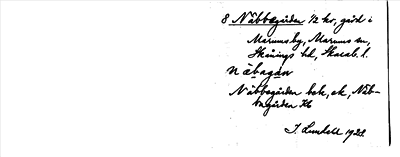 8 Näbbagården 1/2 kr, gård i
Marums by, Marums sn,
Skånings hd, Skarab. l.
näbagan
Näbbagården bok, ek, Näb-
bagården Kb
J. Lundell 1922